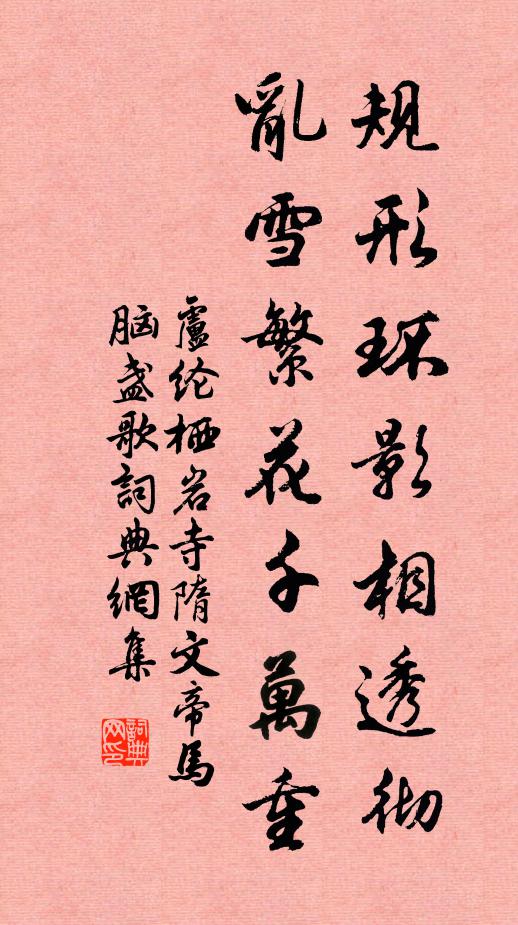 規形环影相透彻
亂雪繁花千萬重
盧纶栖岩寺隋文帝馬
脑盏歌詞典網集
詞典網印